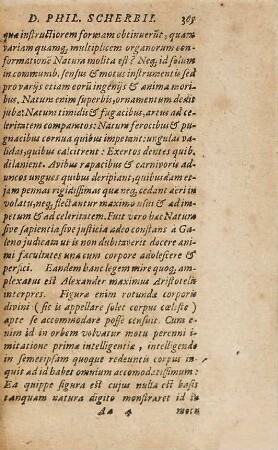 D. PHIL. SCHERBII.
qua instructiorem formam obtinuerũt, quam
variam quamq, multiplicem organorum con-
formationẽ Natura molita est? Neq, id solum
in communib, sensus & motus instrumentis sed
pro varijs etiam eorũ ingenijs & anima mori-
bus. Naturn enim superbis, ornamentum dedit
juba: Natura timidis & fugacibus, artus ad ce-
leritatem comparatos: Natura ferocibus & pu-
gnacibus cornua quibus impetant: ungulas va-
lidas, quibus calcitrent: Exertos dentes quib,
dilanient. Avibus rapacibus & carnivoris ad-
uncos ungues quibus deripiant, quibusdam et-
jam pennas rigidissimas quæ neq, cedant aëri in
volatu, neq, flectantur maximo usui & ad im-
petum & ad celeritatem. Fuit vero hæc Natura
sive sapientia sive justicia adeo constans à Ga-
leno judicata ut is non dubitaverit docere ani-
mi facultates una cum corpore adolescere &
persici. Eandem hanc legem mire quoq, am-
plexatus est Alexander maximus Aristotelis
interpres. Figuræ enim rotundæ corporis
divini (sic is appellare solet corpus cœleste)
apte se accommodare posse censuit. Cum e-
nim id in orbem volvatur motu perenni i-
mitatione primæ intelligentiæ, intelligendo
in semetipsam quoque redeuntis corpus in-
quit ad id habet omnium accomodatissimum:
Ea quippe figura est cujus nulla est basis
tanquam natura digito monstraret id in
Aa 4 motu